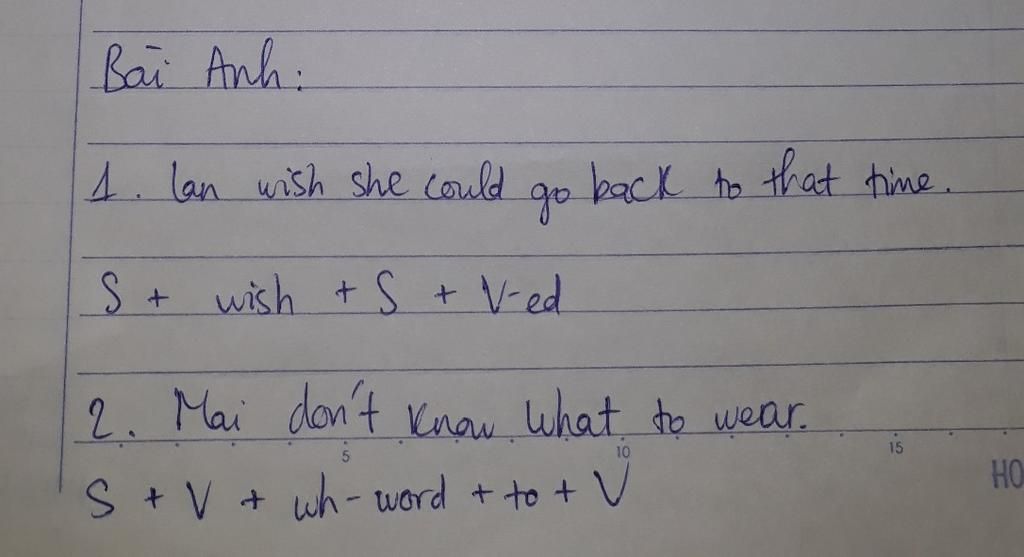 Bài Anh:
1. Lan wish she could go back to that time.
S + wish + S + V-ed
2. Mai don't know what to wear.
5 10 15
HO
S + V + wh-word + to + V